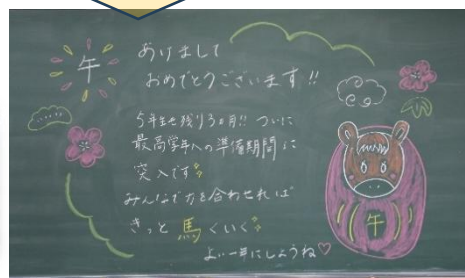 午
あけまして
おめでとうございます!!
5年生も残り3ヶ月!! ついに
最高学年への準備期間に
突入です
みんなで力を合わせれば
きっと馬くいく
よい一年にしようね♡
午